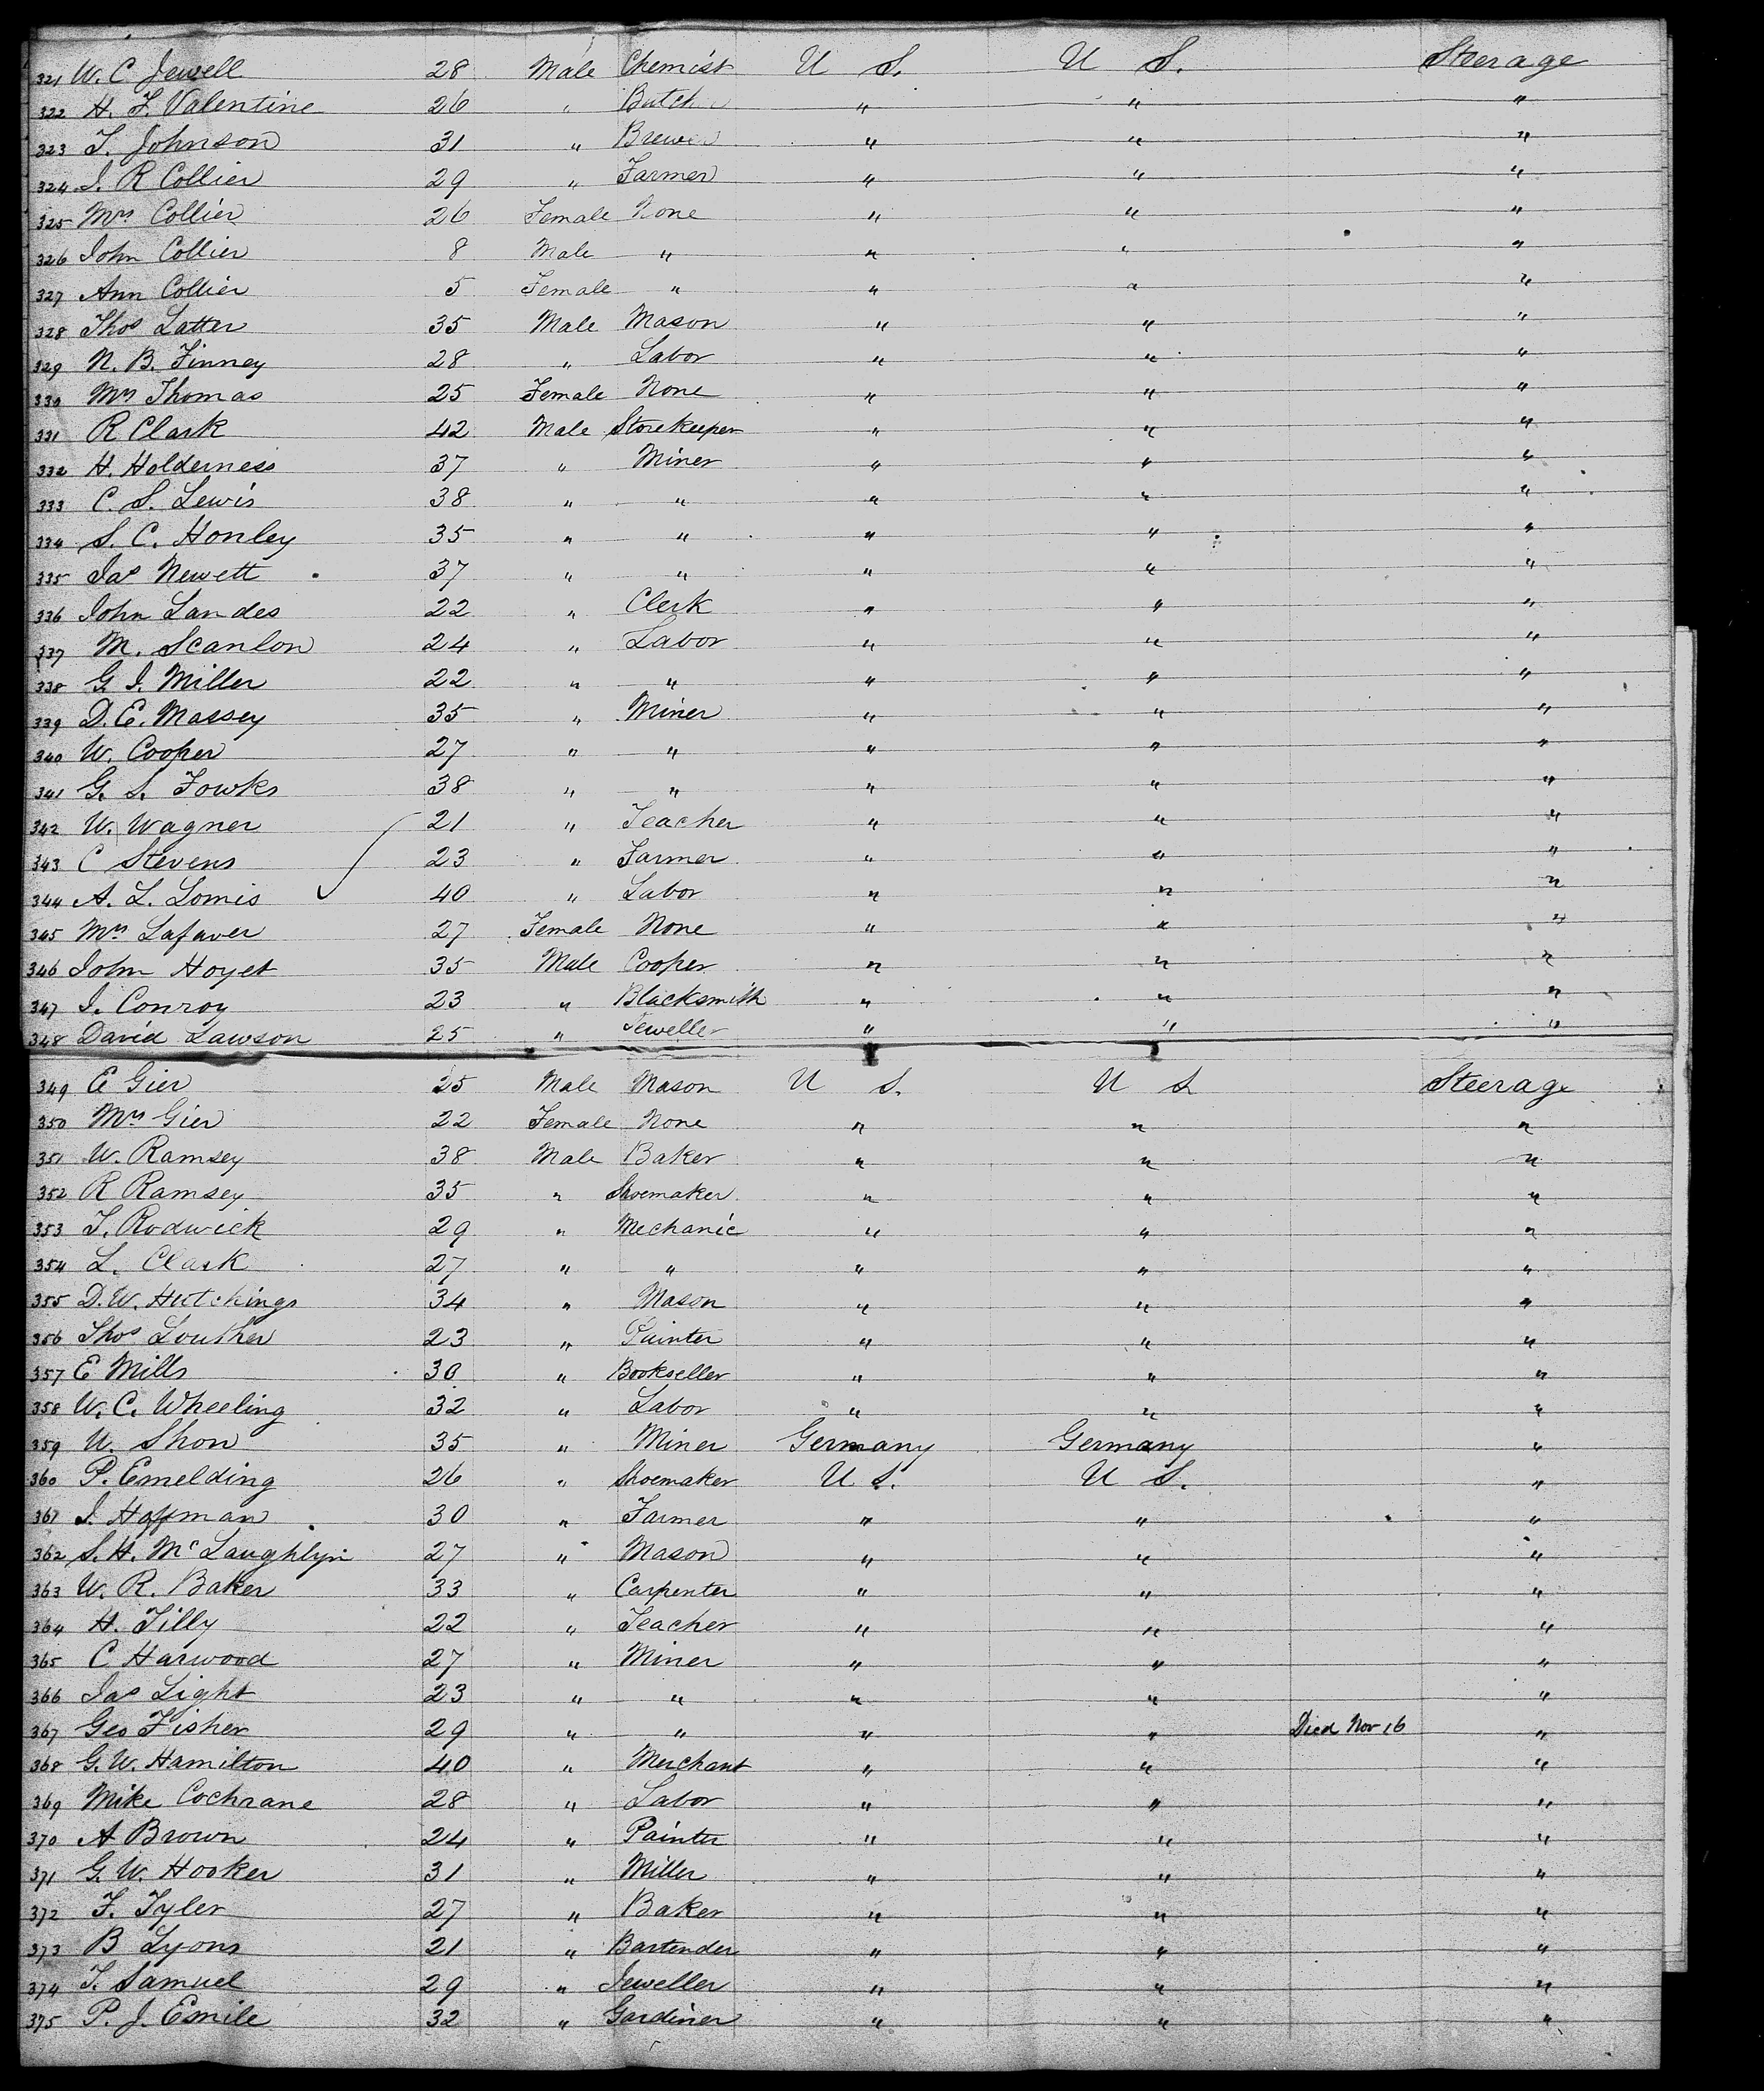 321 W. C Jewell 28 Male Chemist U S. U S. Steerage
322 H. F. Valentine 26 " Butch " " "
323 T. Johnson 31 " Brewer " " "
324 J. R Collier 29 " Farmer " " "
325 Mrs Collier 26 Female None " " "
326 John Collier 8 Male " " " "
327 Ann Collier 5 Female " " " "
328 Thos Latter 35 Male Mason " " "
329 N. B. Finney 28 " Labor " " "
330 Mrs Thomas 25 Female None " " "
331 R Clark 42 Male Storekeeper " " "
332 H. Holderness 37 " Miner " " "
333 C. S. Lewis 38 " " " " "
334 S. C. Honley 35 " " " " "
335 Jas Newett 37 " " " " "
336 John Landes 22 " Clerk " " "
337 M. Scanlon 24 " Labor " " "
338 G. J. Miller 22 " " " " "
339 D. E. Massey 35 " Miner " " "
340 W. Cooper 27 " " " " "
341 G. S. Fowks 38 " " " " "
342 W. Wagner 21 " Teacher " " "
343 C Stevens 23 " Farmer " " "
344 A. L. Lomis 40 " Labor " " "
345 Mrs Lafaver 27 Female None " " "
346 John Hoyet 35 Male Cooper " " "
347 J. Conroy 23 " Blacksmith " " "
348 David Lawson 25 " Jeweller " " "
349 E Gier 25 Male Mason U S. U S Steerage
350 Mrs Gier 22 Female None " " "
351 W. Ramsey 38 Male Baker " " "
352 R Ramsey 35 " Shoemaker " " "
353 T. Rodwick 29 " Mechanic " " "
354 L. Clark 27 " " " " "
355 D. W. Hutchings 34 " Mason " " "
356 Thos Louther 23 " Painter " " "
357 E Mills 30 " Bookseller " " "
358 W. C. Wheeling 32 " Labor " " "
359 U. Shon 35 " Miner Germany Germany "
360 P. Emelding 26 " Shoemaker U S. U S. "
361 J. Hoffman 30 " Farmer " " "
362 S. H. McLaughlyn 27 " Mason " " "
363 W. R. Baker 33 " Carpenter " " "
364 H. Tilly 22 " Teacher " " "
365 C Harwood 27 " Miner " " "
366 Jas Light 23 " " " " "
367 Geo Fisher 29 " " " " Died Nov 16 "
368 G. W. Hamilton 40 " Merchant " " "
369 Mike Cochrane 28 " Labor " " "
370 A Brown 24 " Painter " " "
371 G. W. Hooker 31 " Miller " " "
372 F. Tyler 27 " Baker " " "
373 B Lyons 21 " Bartender " " "
374 T. Samuel 29 " Jeweller " " "
375 P. J. Emile 32 " Gardiner " " "